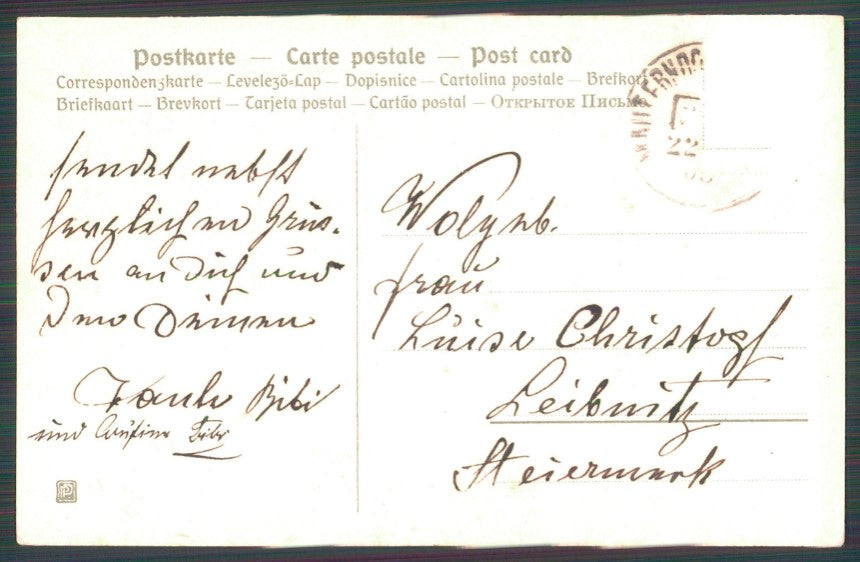 Postkarte — Carte postale — Post card
Correspondenzkarte — Levelezö-Lap — Dopisnice — Cartolina postale — Brefkort
Briefkaart — Brevkort — Tarjeta postal — Cartão postal — Открытое Письмо
22
sendet nebst
herzlichen Grüs-
sen an Dich und
Deinen
Tante Bibi
und Cousine
Wolgeb.
Frau
Luise Christoph
Leibnitz
Steiermark